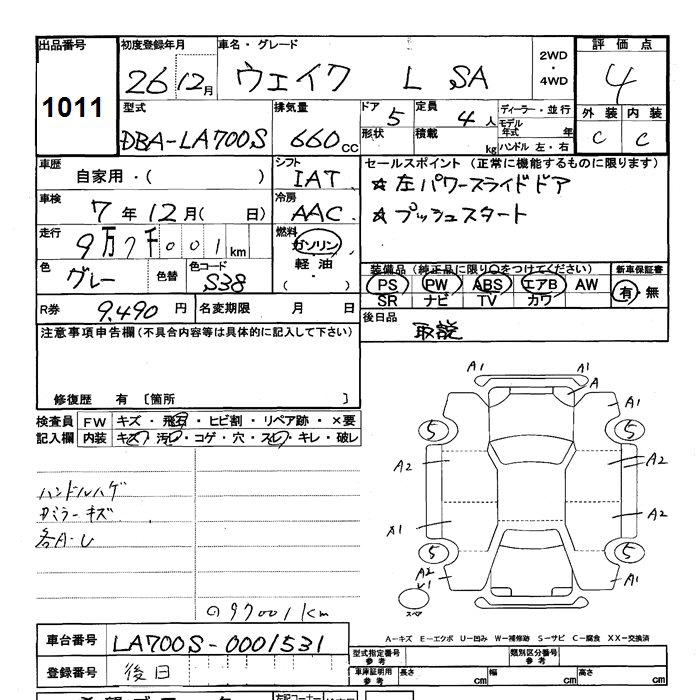 出品番号 初度登録年月 車名・グレード 2WD・4WD 評価点
1011 26 12月 ウェイク L SA 4
型式 排気量 ドア 5 定員 4人 ディーラー・並行 外装 内装
DBA-LA700S 660cc 形状 積載 kg モデル年式 年 C C
ハンドル 左・右
車歴 シフト セールスポイント(正常に機能するものに限ります)
自家用・( ) IAT ☆左パワースライドドア
車検 7年12月( 日) 冷房 AAC ☆プッシュスタート
走行 9万7千001km 燃料 ガソリン
軽油
( ・ )
色 グレー 色替 色コード S38 装備品(純正品に限り○をつけてください) 新車保証書
PS PW ABS エアB AW 有・無
SR ナビ TV カワ
R券 9,490円 名変期限 月 日 後日品 取説
注意事項申告欄(不具合内容等は具体的に記入して下さい)
修復歴 有 〔箇所 〕
検査員 FW キズ・飛石・ヒビ割・リペア跡・×要
記入欄 内装 キズ・汚レ・コゲ・穴・スレ・キレ・破レ
ハンドルハゲ
ミラーキズ
各A-U
97001km
A1 A A1 A1
5 5
A2 A2
A2
X1
5 5
A2 A1
スペア
A-キズ E-エクボ U-凹み W-補修跡 S-サビ C-腐食 XX-交換済
車台番号 LA700S-0001531 型式指定番号 参考 類別区分番号 参考
登録番号 後日 車庫証明用 参考 長さ cm 幅 cm 高さ cm